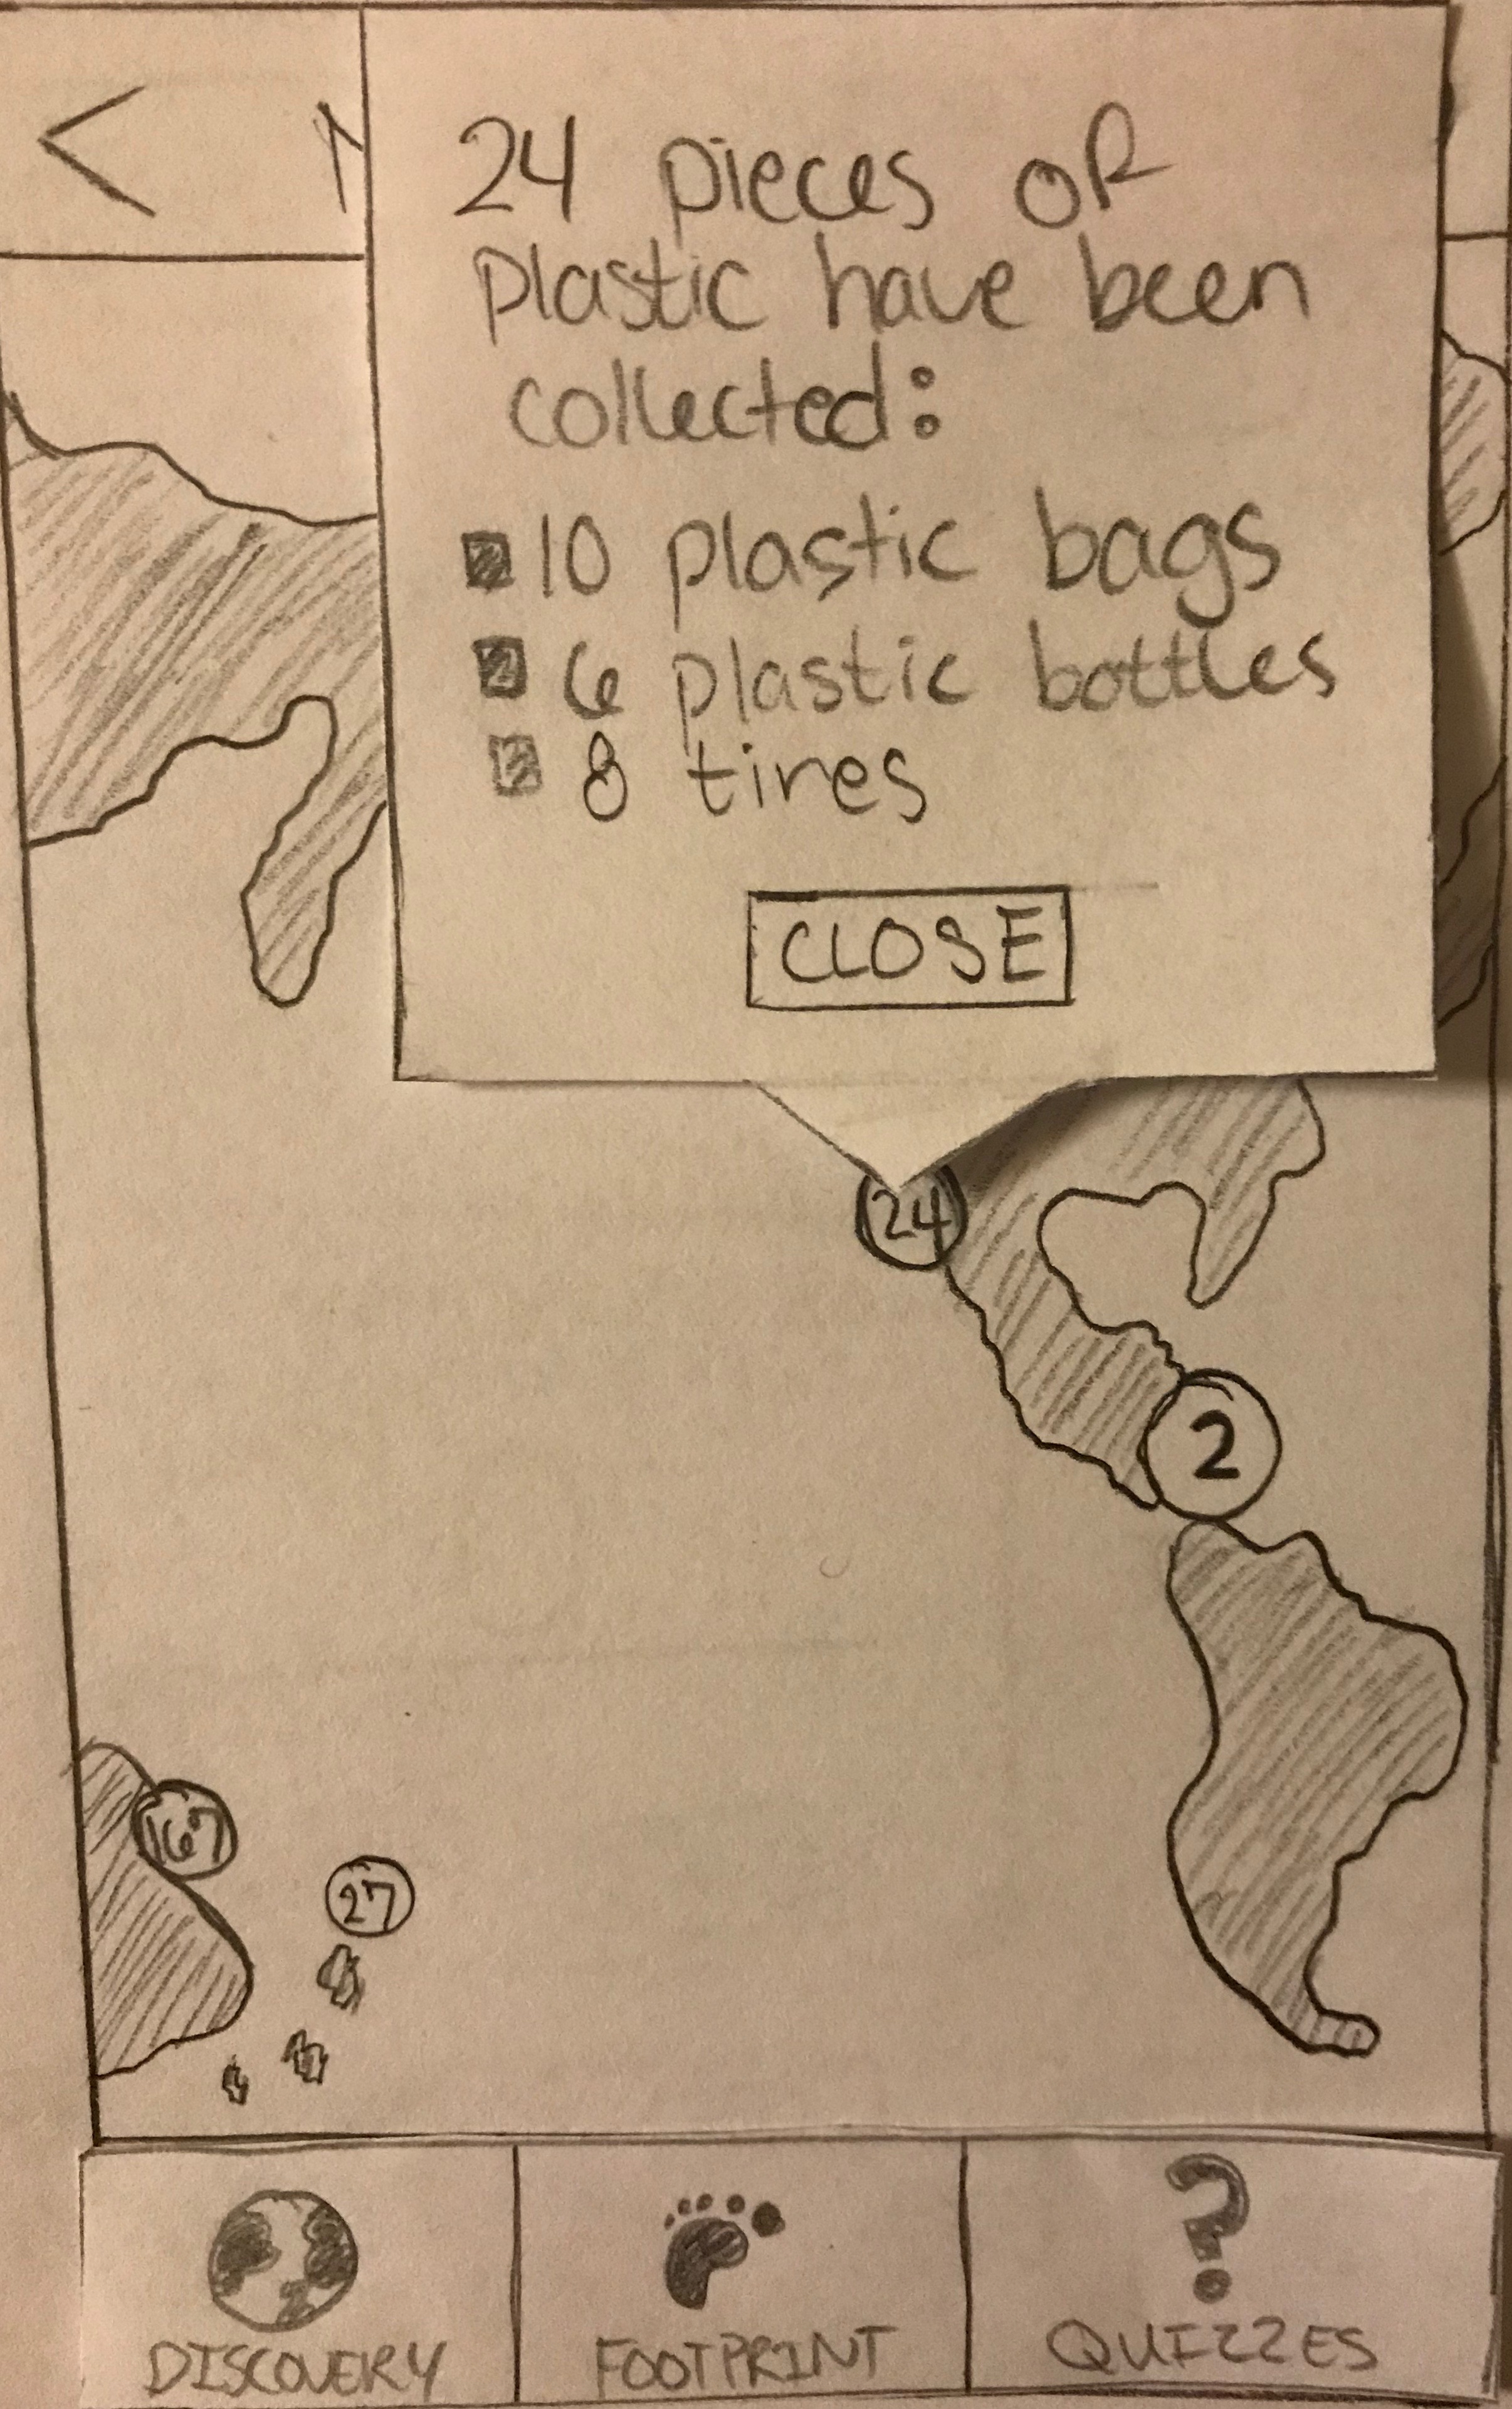 <
24 pieces of
plastic have been
collected:
10 plastic bags
6 plastic bottles
8 tires
CLOSE
24
2
167
27
?
DISCOVERY
FOOTPRINT
QUIZZES